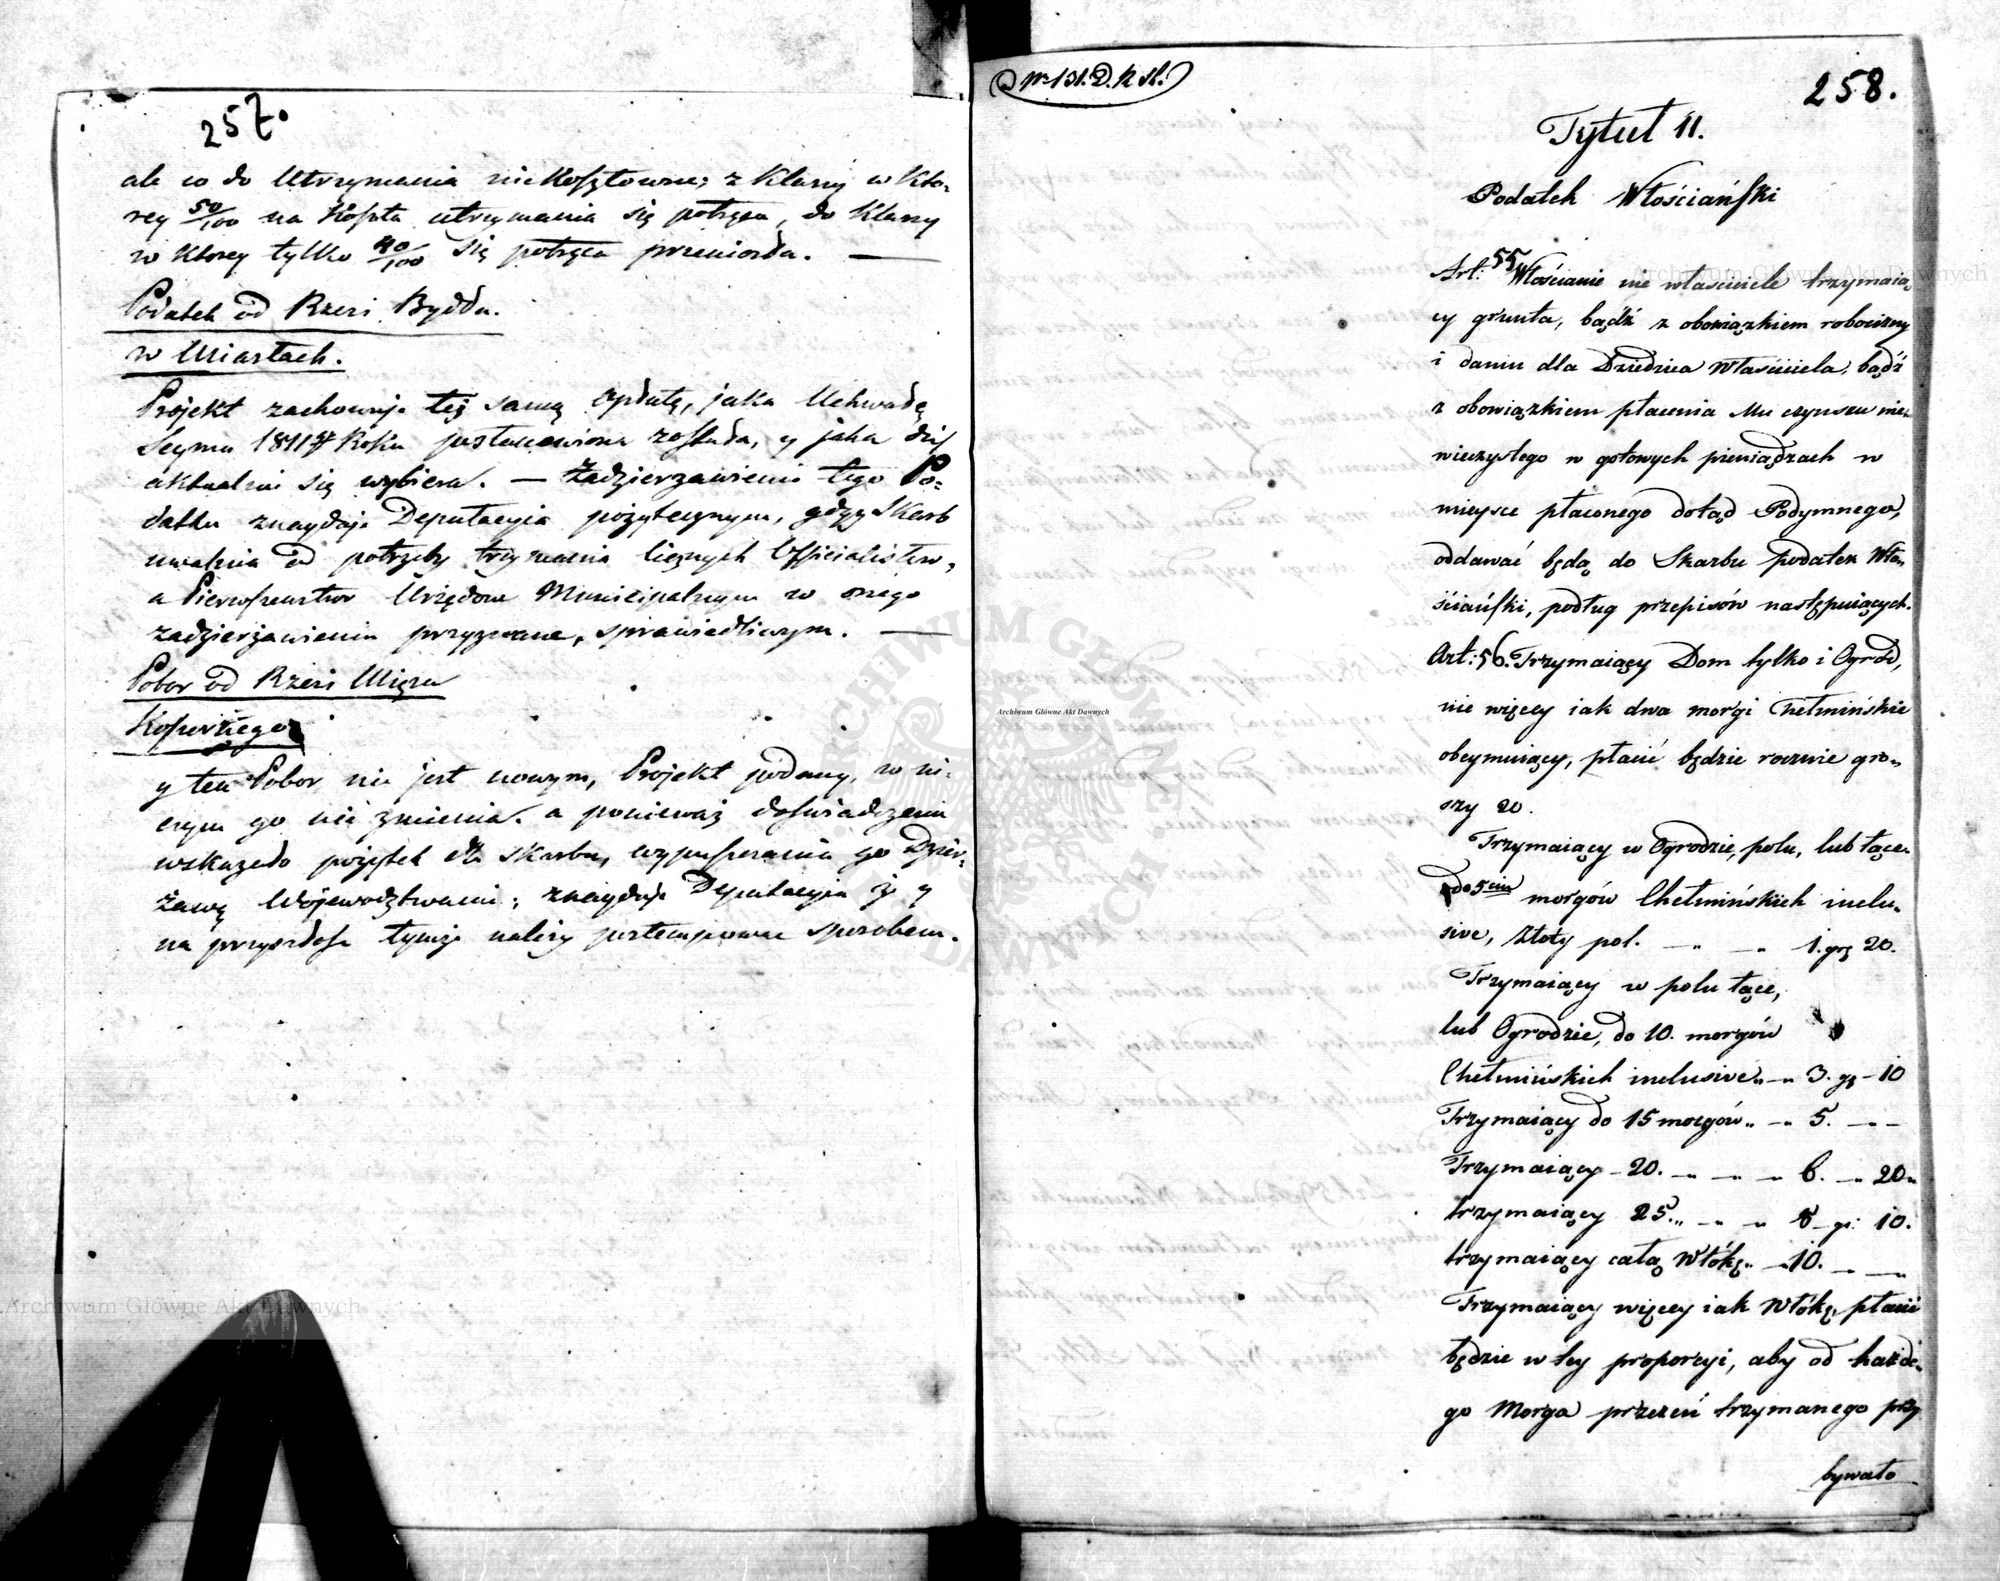 257.
ale co do Utrzymania niekosztowne; z Klassy w kto-
rey 50/100 na koszta utrzymania się potrąca, do Klassy
w ktorey tylko 40/100 się potrąca przeniosła. —
Podatek od Rzezi Bydła.
w Miastach.
Projekt zachowuje też samą opłatę, jaka Uchwałą
Seymu 1811go Roku postanowiona została, y jaka dziś
aktualnie się wybiera. — Zadzierzawienie tego Po-
datku znayduje Deputacyia pożytecznym, gdyż Skarb
uwalnia od potrzeby trzymania licznych Officialistow,
a Pierwszenstwo Urzędom Municipalnym w onego
zadzierżawieniu przyznane, sprawiedliwym. —
Pobor od Rzezi Mięsa
Koszernego
y ten Pobor nie jest nowym, Projekt podany, w ni-
czym go nie zmienia. a ponieważ doswiadczenie
wskazało pożytek dla Skarbu, wypuszczania go Dzier-
żawą Województwami; znayduje Deputacyia iż y
na przyszłość tymże należy postempować sposobem.
Nr 131. D. K. st.
258.
Tytuł II.
Podatek Włościański
Art: 55. Włościanie nie właściciele trzymaią-
cy grunta, bądź z obowiązkiem robocizny
i danin dla Dziedzica Właściciela, bądź
z obowiązkiem płacenia Mu czynszu nie-
wieczystego w gotowych pieniądzach w
mieysce płaconego dotąd Podymnego,
oddawać będą do Skarbu podatek Wło-
ściański, podług przepisów następuiących.
Art: 56. Trzymaiący Dom tylko i Ogród,
nie więcey iak dwa morgi Chełmińskie
obeymuiący, płacić będzie rocznie gro-
szy 20.
Trzymaiący w Ogrodzie, polu, lub łące.
do 5ciu morgów Chełmińskich inclu-
sive, Złoty pol. — " — " 1. gr 20.
Trzymaiący w polu łące,
lub Ogrodzie, do 10. morgów
Chełmińskich inclusive " — " 3. gr — 10
Trzymaiący do 15 morgów " — " 5. — " —
Trzymaiący — 20. — " — " — " 6. — " 20 "
trzymaiący 25. " — " — " 8 — gr: 10.
trzymaiący całą Włókę " — " 10. — " —
Trzymaiący więcey iak Włókę, płacić
będzie w tey proporcyi, aby od każde-
go Morga przezeń trzymanego przy
bywało
Archiwum Główne Akt Dawnych
Archiwum Główne Akt Dawnych
Archiwum Główne Akt Dawnych
ARCHIWUM GŁÓWNE AKT DAWNYCH